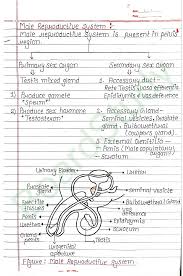 Male Reproductive System :
Male reproductive System is present in pelvic
region
Primary Sex organ
Secondary Sex organ
Testis mixed gland
1. Accessory duct -
Rete Testis Vasa efferentia
Epididymis & vas deference
1) Produce gamete
"Sperm"
2) Produce Sex hormone
"Testosterone"
2. Accessory Gland -
Seminal vesicles, Prostate
gland, Bulbourethral
(Cowper's gland)
3. External Genitilia -
Penis (Male copulatory
organ) →
Scrotum
Urinary Bladder
Ureter
Prostate
gland
Seminal vesicle
Bulbourethral Gland
Urethra
Vas
deference
Penis
Epididymis
Testis
Scrotum
Figure : Male Reproductive system